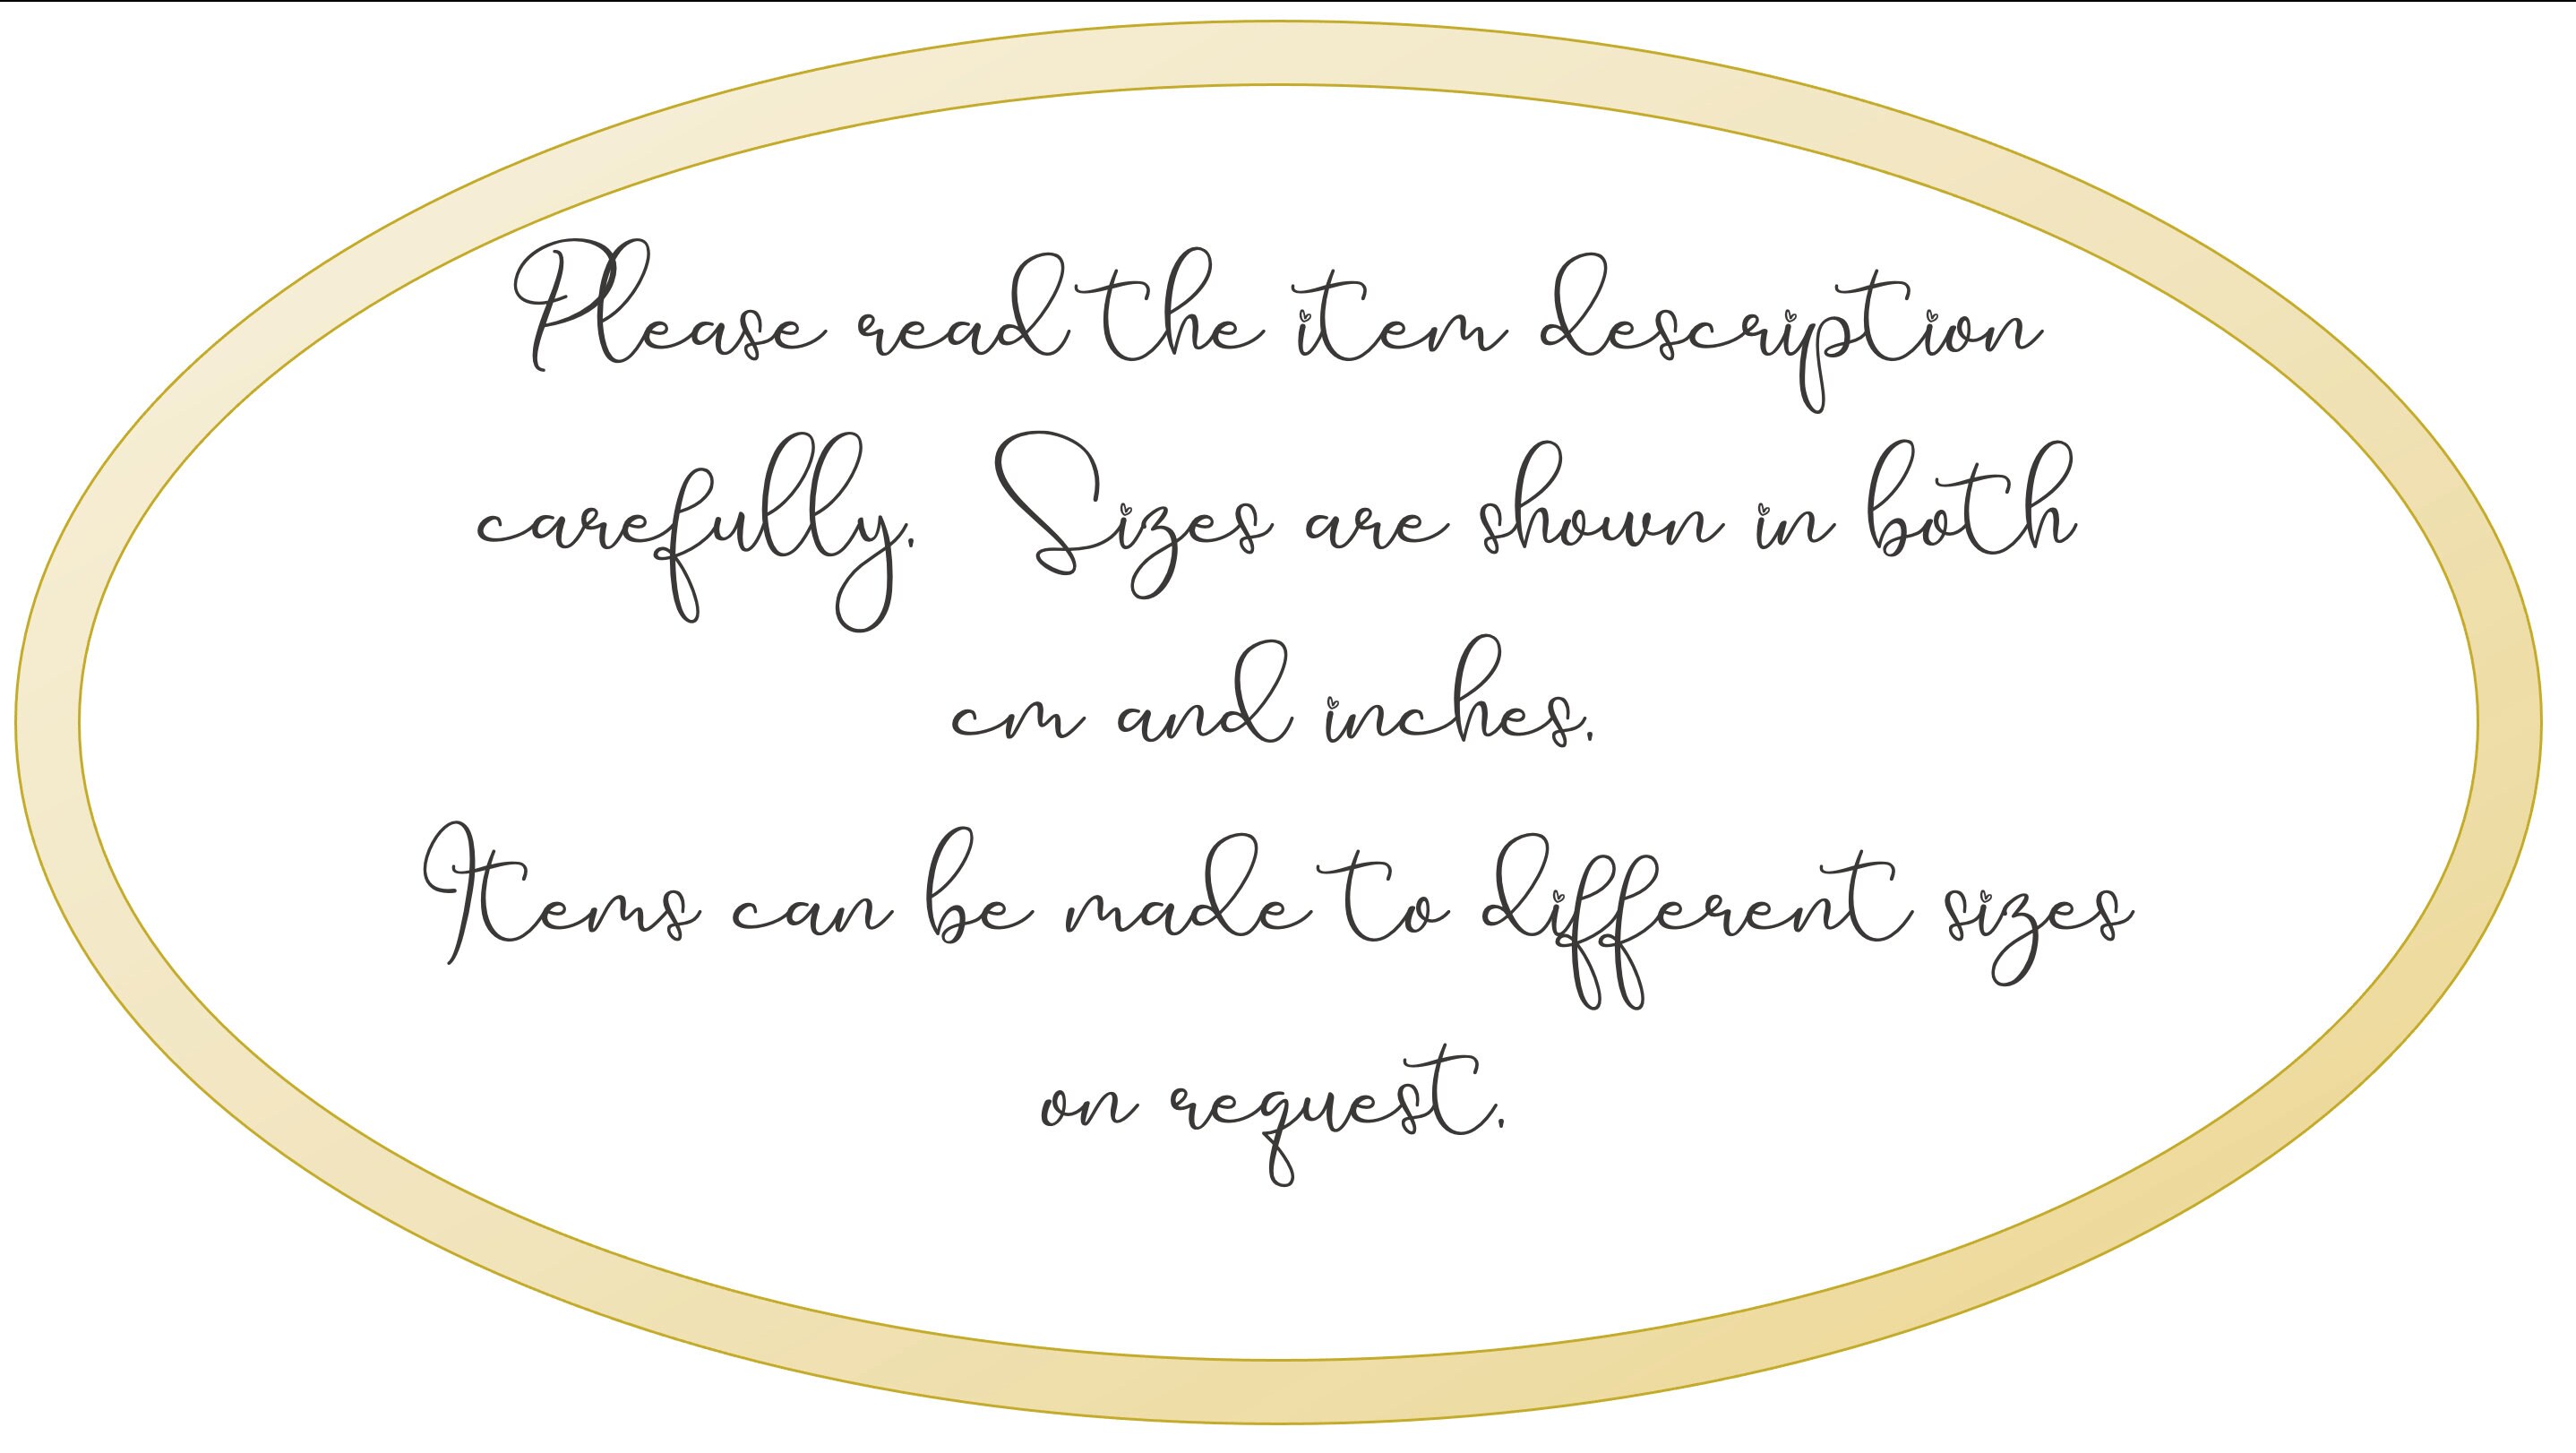 Please read the item description
carefully. Sizes are shown in both
cm and inches.
Items can be made to different sizes
on request.